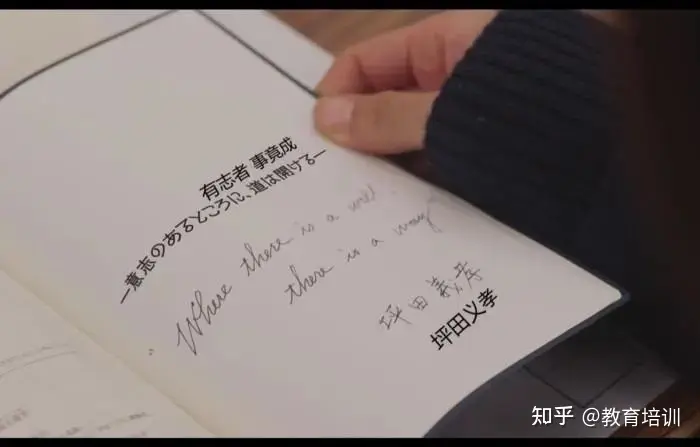 有志者 事竟成
—意志のあるところに、道は開ける—
Where there is a will,
there is a way
坪田義孝
坪田义孝
知乎 @教育培训